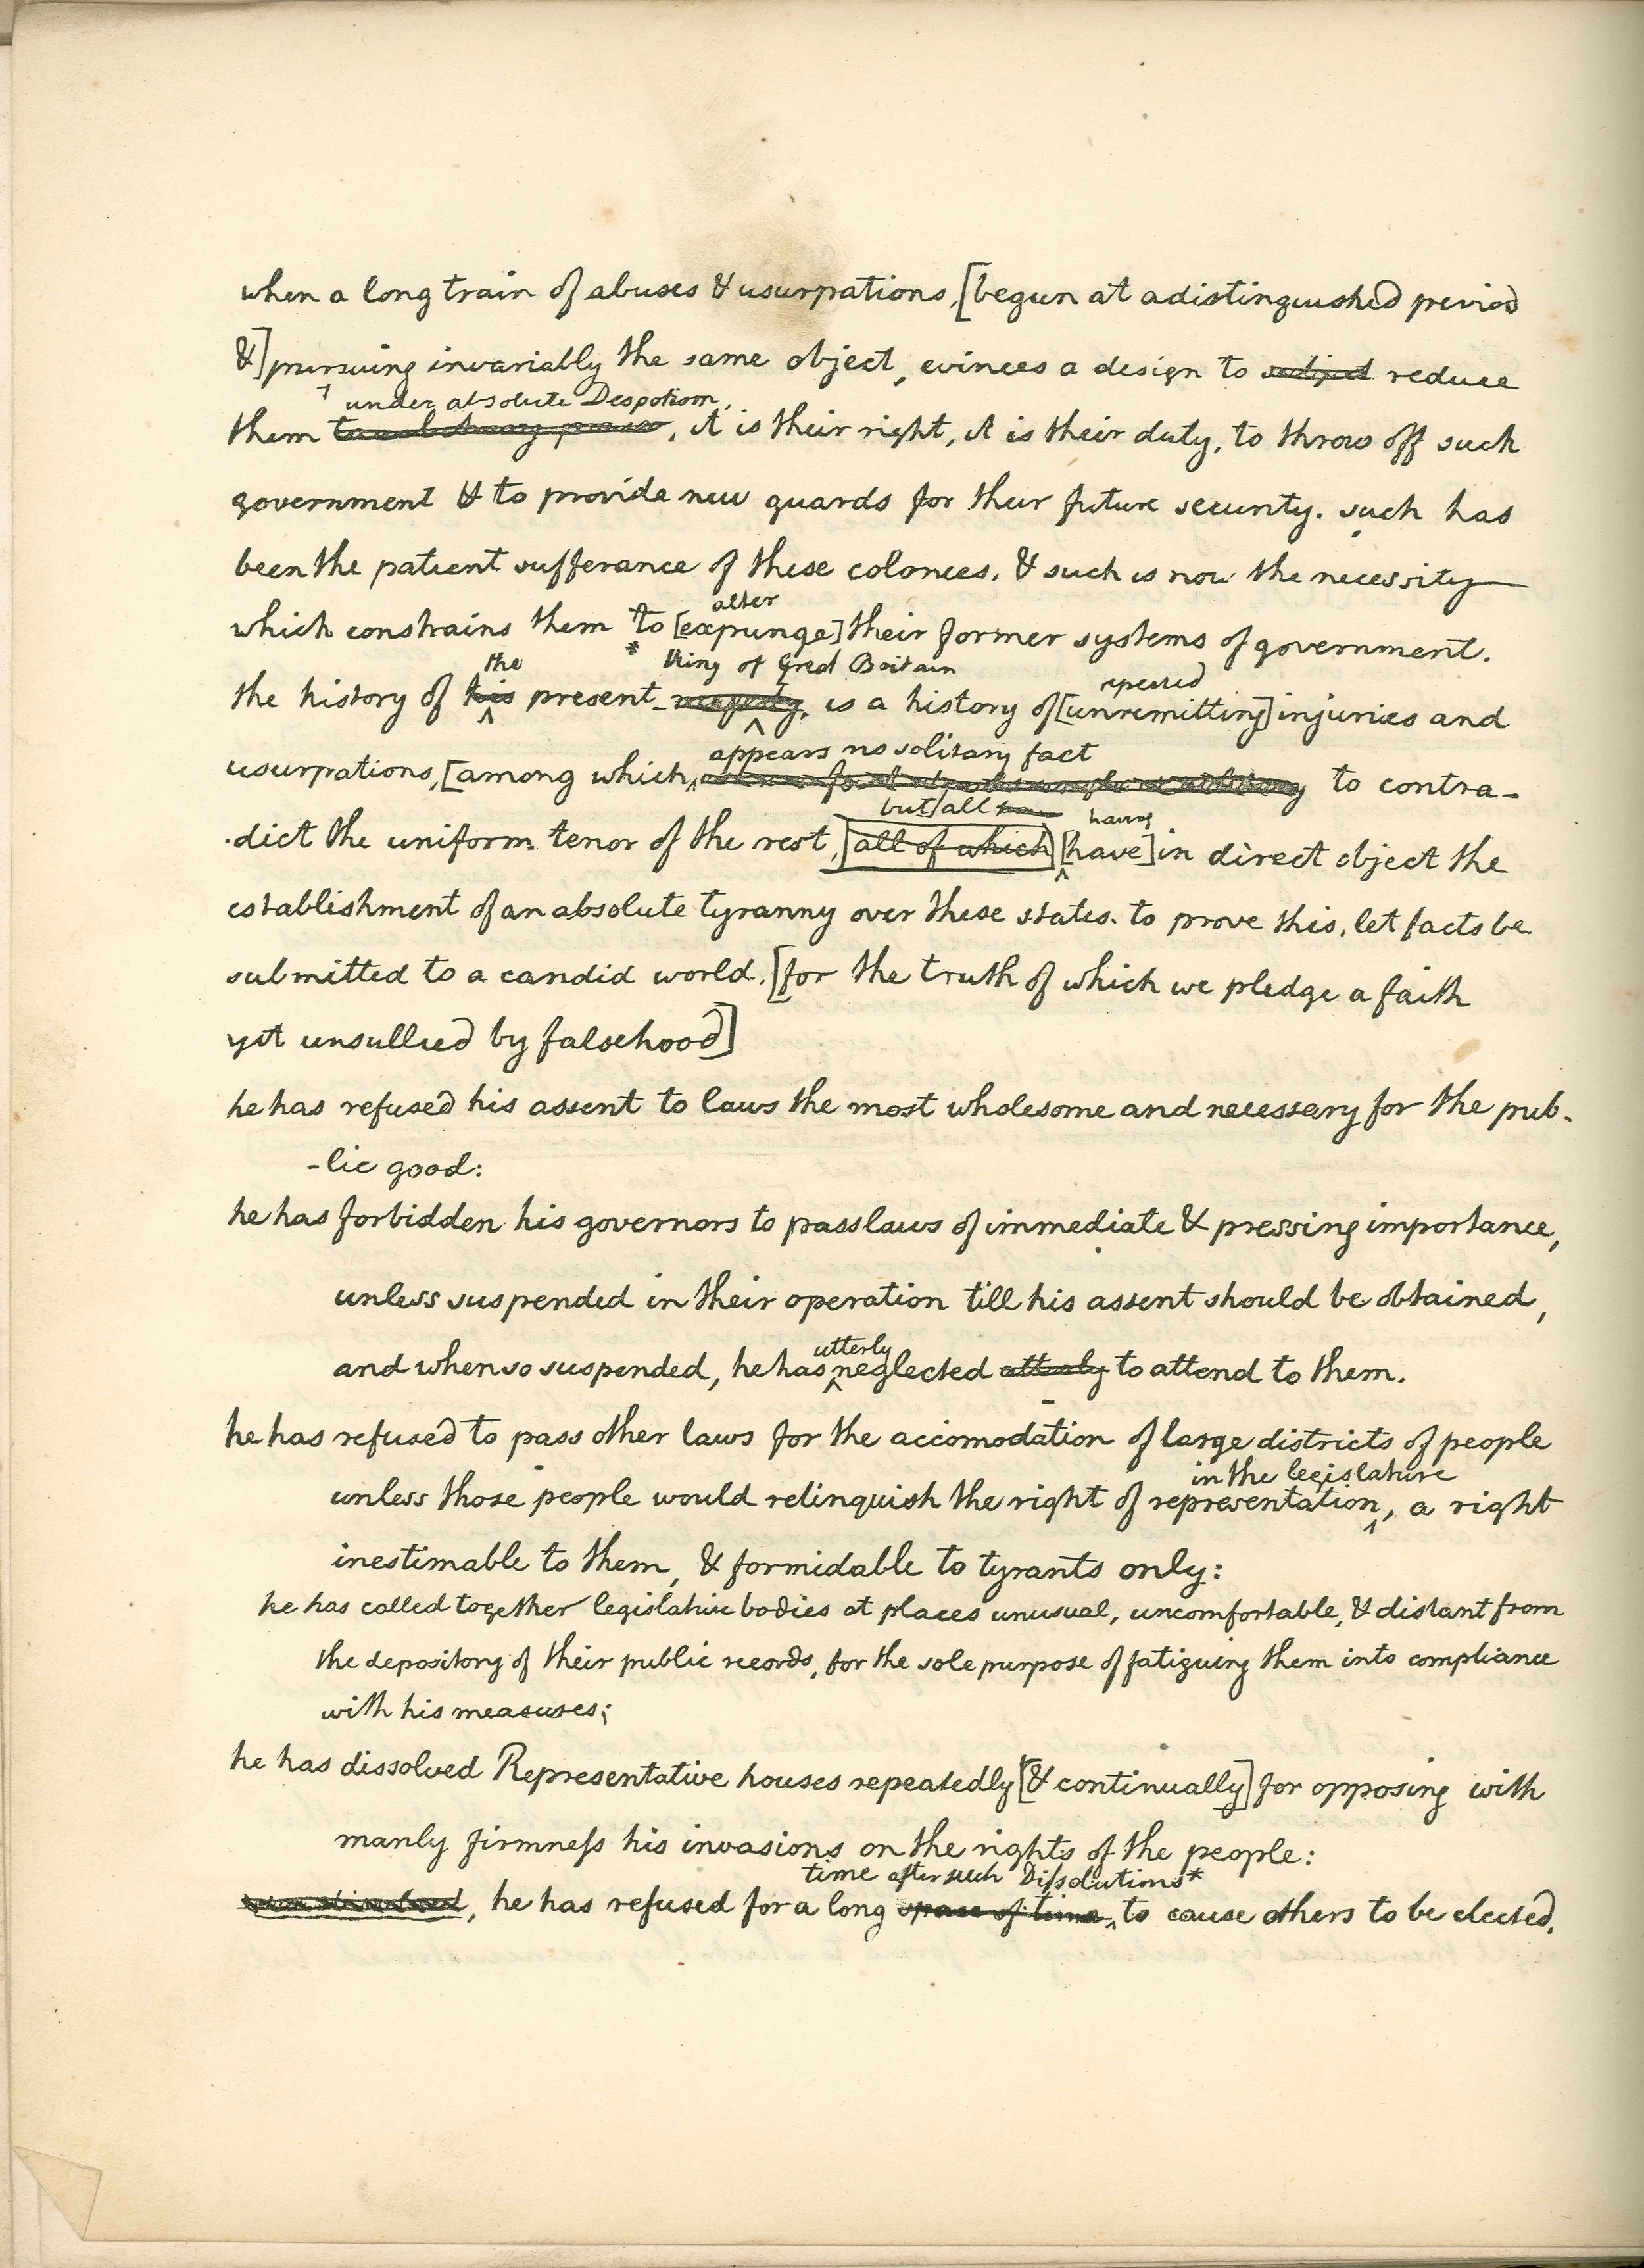 when a long train of abuses & usurpations, [begun at a distinguished period
&] pursuing invariably the same object, evinces a design to subject reduce
under absolute Despotism,
them , it is their right, it is their duty, to throw off such
government & to provide new guards for their future security. such has
been the patient sufferance of these colonies. & such is now the necessity
alter
which constrains them to [expunge] their former systems of government.
the * King of Great Britain repeated
the history of his present majesty, is a history of [unremitting] injuries and
appears no solitary fact
usurpations, [among which, to contra-
but all have having
-dict the uniform tenor of the rest, [all of which] [have] in direct object the
establishment of an absolute tyranny over these states. to prove this, let facts be
submitted to a candid world. [for the truth of which we pledge a faith
yet unsullied by falsehood]
he has refused his assent to laws the most wholesome and necessary for the pub-
-lic good:
he has forbidden his governors to pass laws of immediate & pressing importance,
unless suspended in their operation till his assent should be obtained,
utterly
and when so suspended, he has neglected utterly to attend to them.
he has refused to pass other laws for the accomodation of large districts of people
in the legislature
unless those people would relinquish the right of representation, a right
inestimable to them, & formidable to tyrants only:
he has called together legislative bodies at places unusual, uncomfortable, & distant from
the depository of their public records, for the sole purpose of fatiguing them into compliance
with his measures;
he has dissolved Representative houses repeatedly [& continually] for opposing with
manly firmneſs his invasions on the rights of the people:
time after such Diſsolutions*
, he has refused for a long space of time, to cause others to be elected,